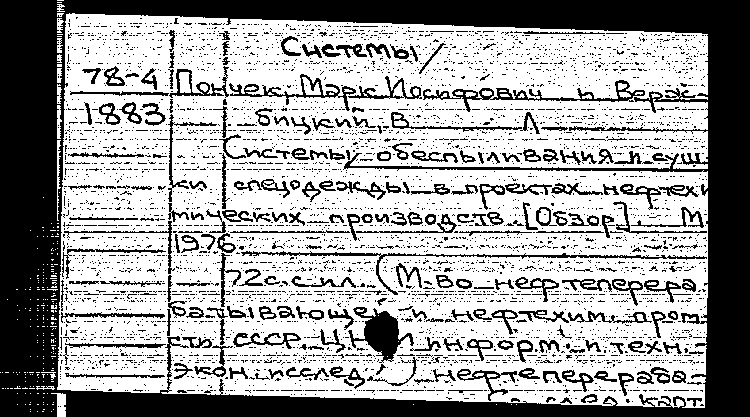 Системы/
78-4 Пончек, Марк Иосифович и Верж-
1883 бицкий, В Л
Системы обеспыливания и суш
ки спецодежды в проектах нефтехи
мических производств. [Обзор]. М.
1976.
72с. с ил. (М-во нефтеперера
батывающей и нефтехим. пром-
сти СССР. ЦН информ. и техн.-
экон. исслед.) нефтеперераба-
След. карт.